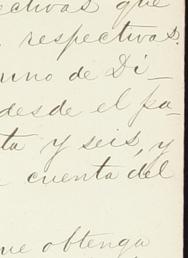 ectivas que
respectivas.
uno de Di-
desde el pa-
ta y seis, y
cuenta del
ue obtenga